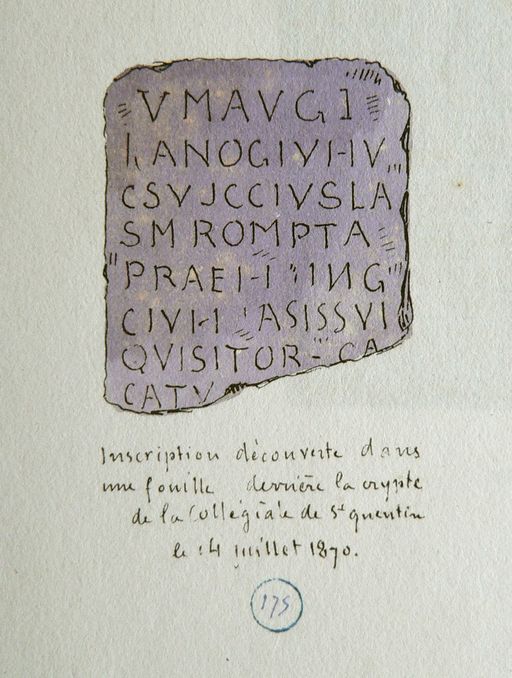 VMAVGI
hANOGIVI-IV
CSVJCCIVSLA
SM ROMPTA
PRAEI-I ING
CIVI-I ASISSVI
QVISITOR-CA
CATV
Inscription découverte dans
une fouille derrière la crypte
de la Collégiale de St quentin
le 14 juillet 1870.
175